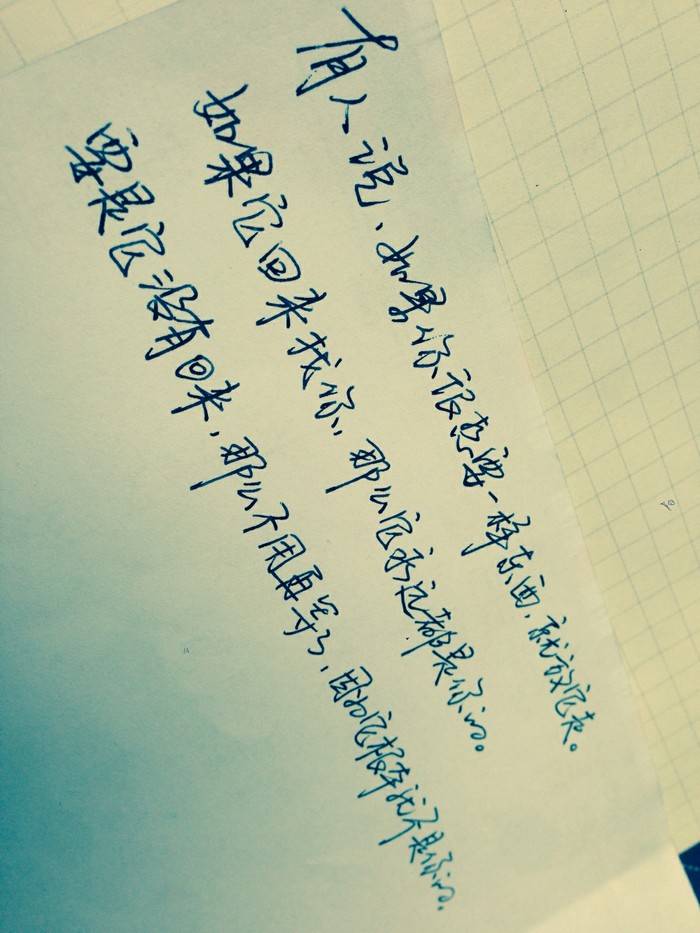 有人说、如果你很想要一样东西，就放它走。
如果它回来找你，那么它永远都是你的。
要是它没有回来，那么不用再等了，因为它根本就不是你的。